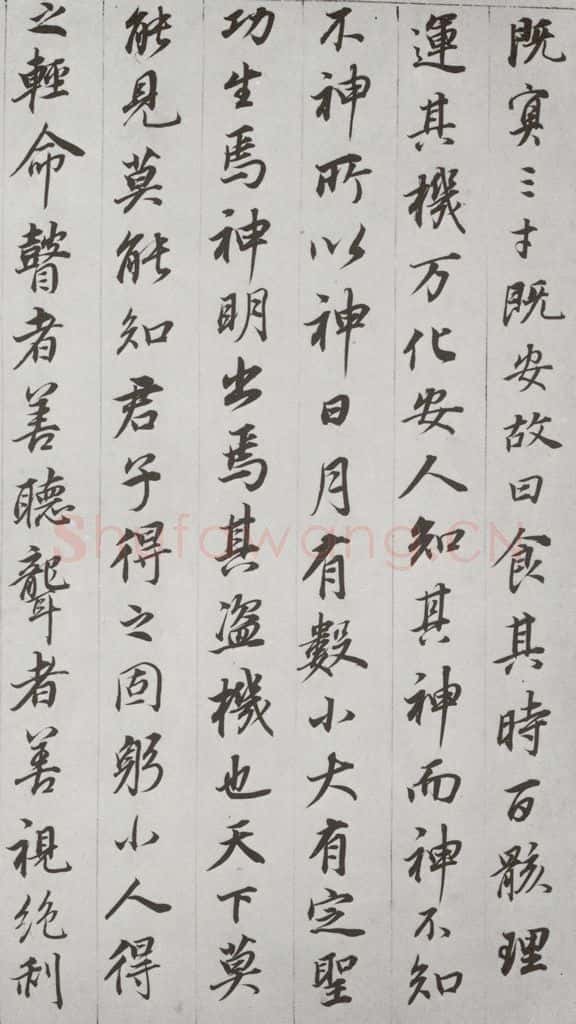 既寘三才既安故曰食其時百骸理
運其機万化安人知其神而神不知
不神所以神日月有數小大有定聖
功生焉神明出焉其盗機也天下莫
能見莫能知君子得之固躬小人得
之輕命瞽者善聽聾者善視絶利
Shufawang.CN